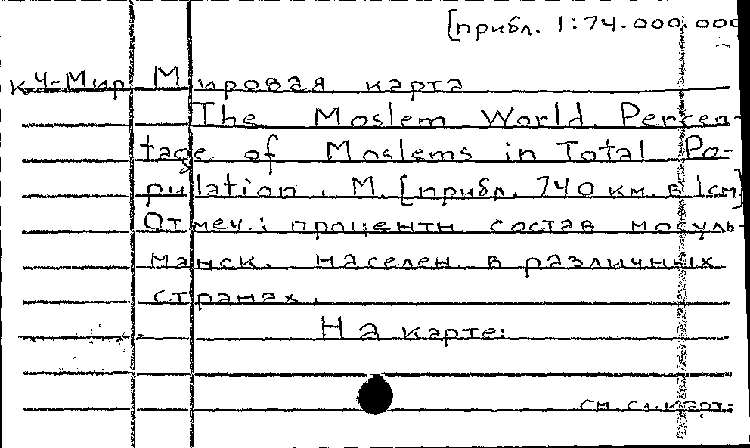 [прибл. 1:74.000.000
К4-Мир Мировая карта
The Moslem World. Percen-
tage of Moslems in Total Po-
pulation. М. [прибл. 740 км. в 1см]
Отмеч.: процентн состав мусуль-
манск. населен. в различных
странах.
На карте:
см. сл. карт.